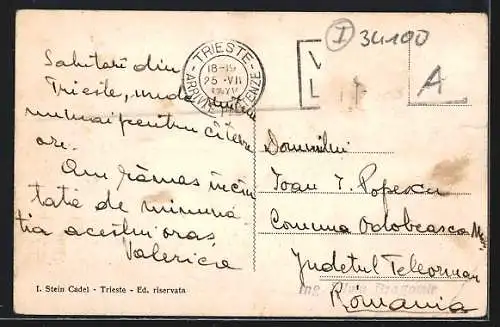 I 34100
TRIESTE
18-19
25 · VII
ARRIVI E PARTENZE
V
L
A
Salutări din
Trieste, unde
numai pentru câteva
ore.
Am rămas încân
tată de minuna
ția acestui oraș
Valeria
Domnului
Ioan I. Popescu
Comuna Odobeasca
Județul Teleorman
România
I. Stein Cadel - Trieste - Ed. riservata